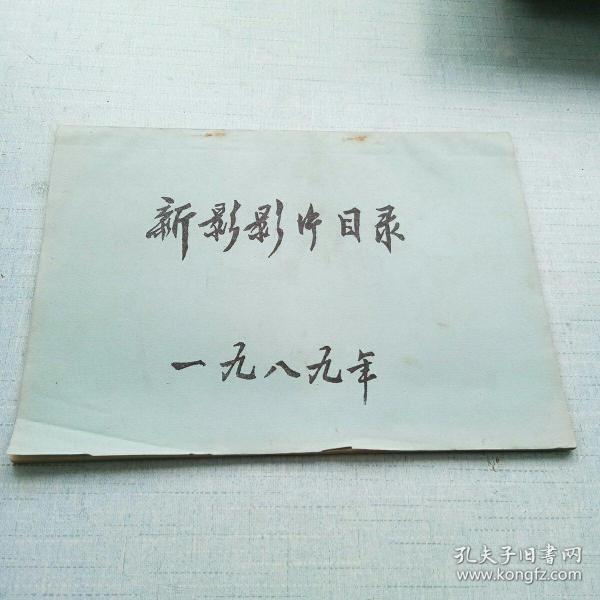 新影影片目录
一九八九年
孔夫子旧書网
www.kongfz.com